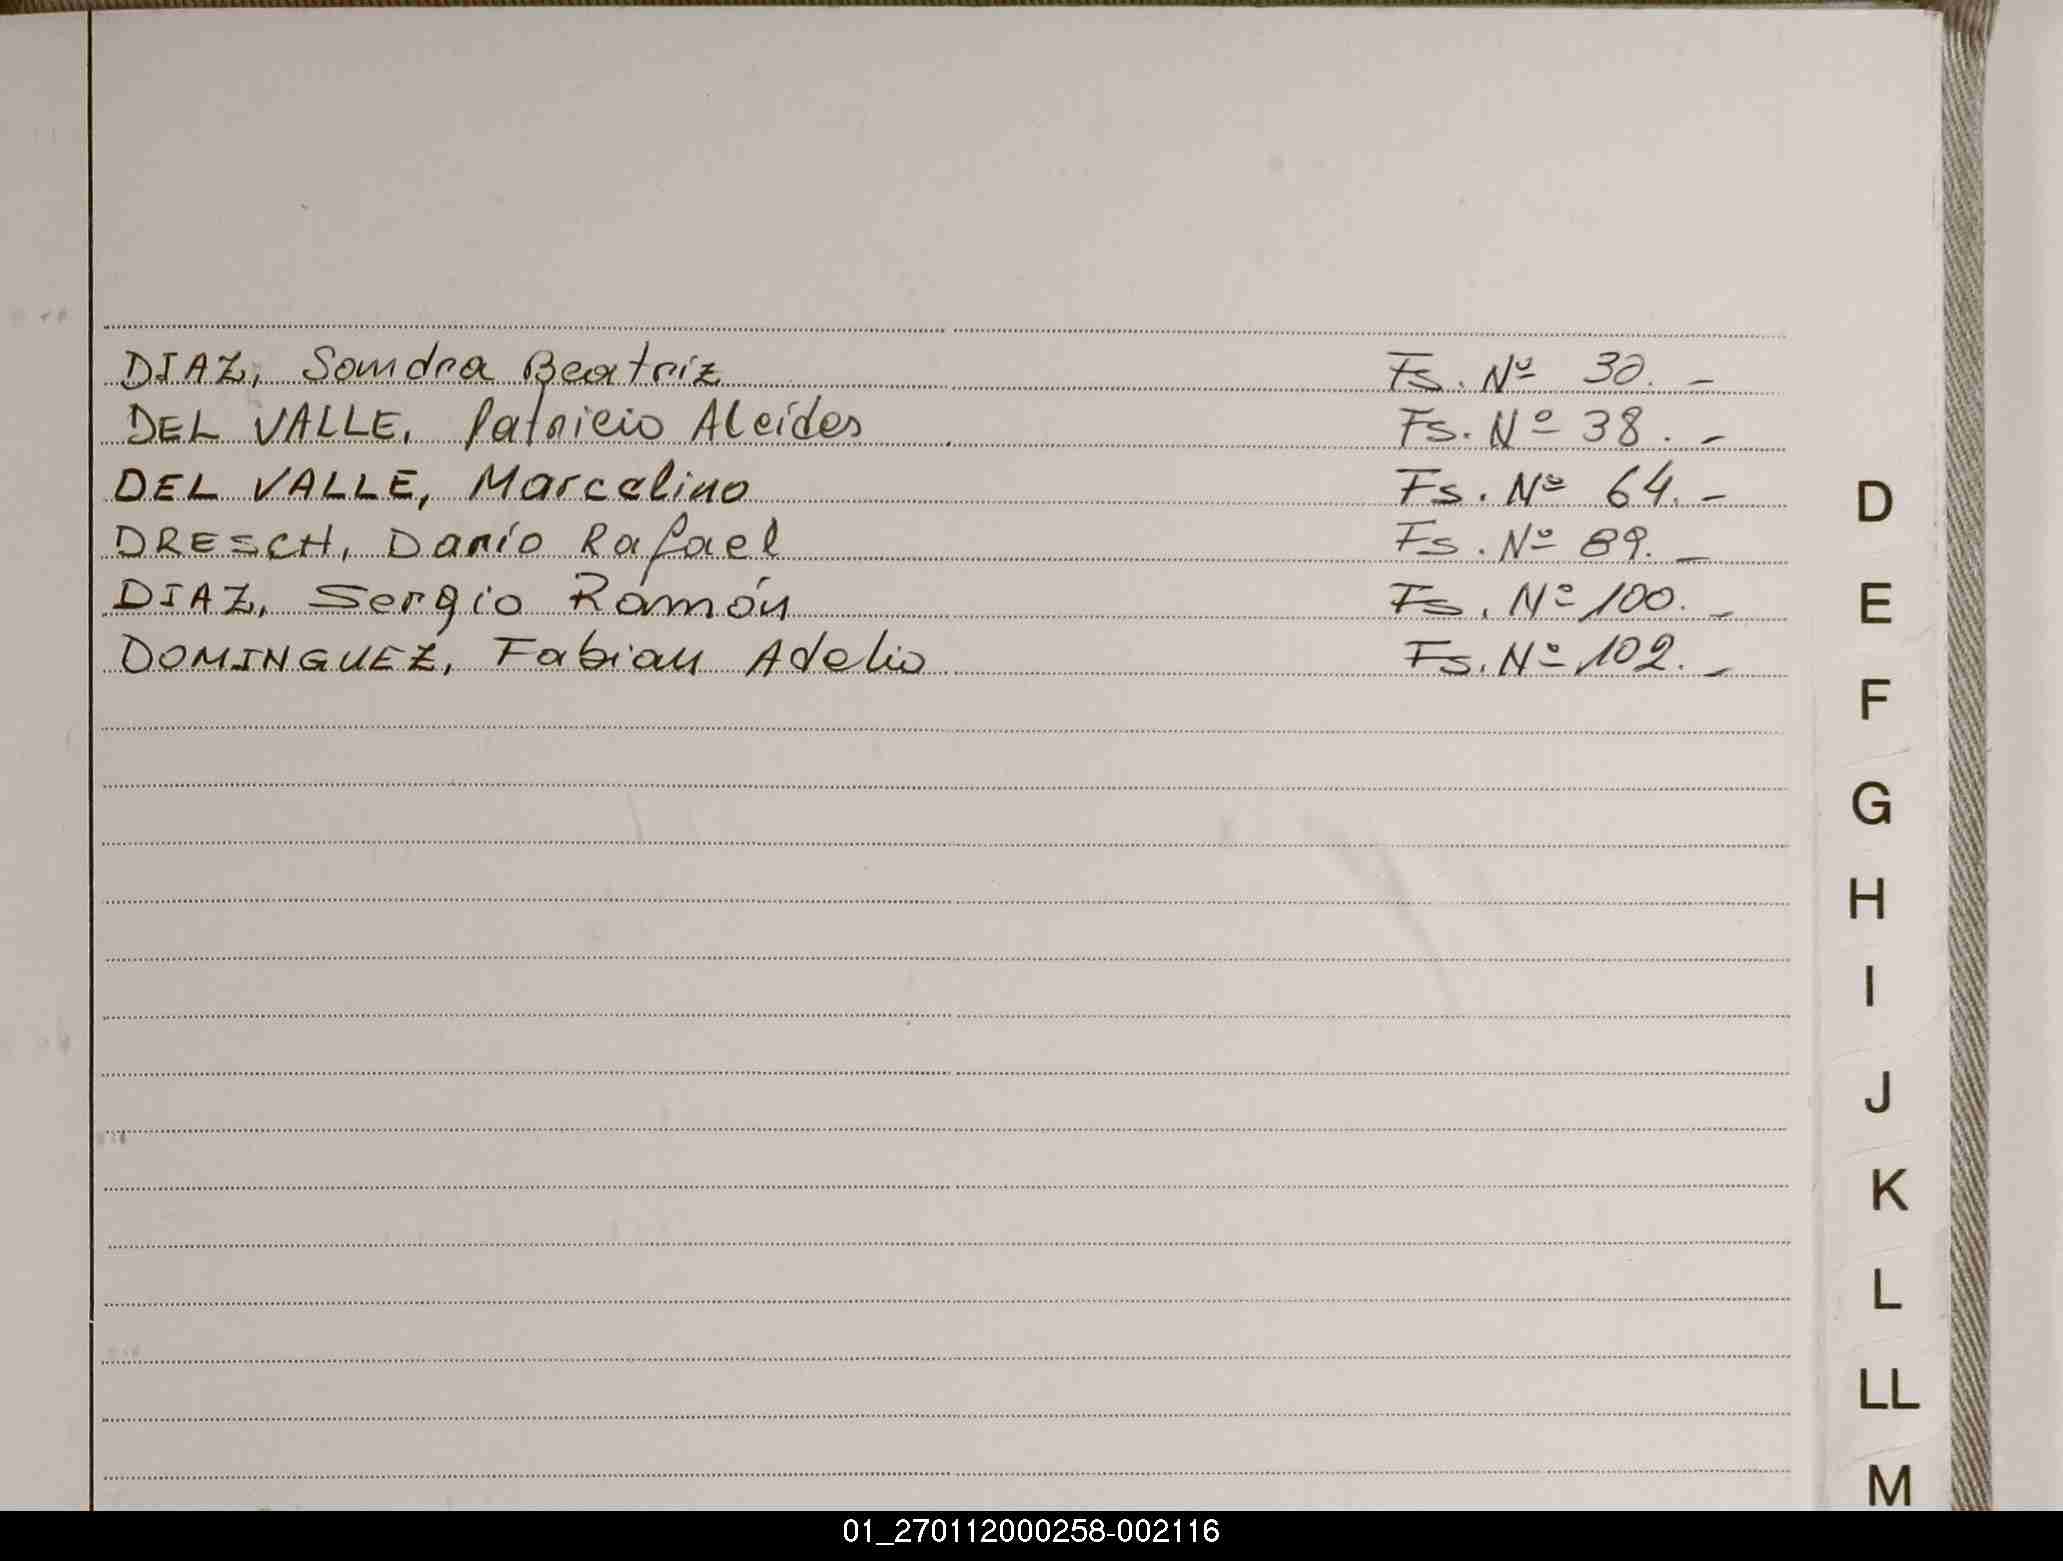 DIAZ, Sandra Beatriz Fs. Nº 30. -
DEL VALLE, Patricio Alcídes Fs. Nº 38. -
DEL VALLE, Marcelino Fs. Nº 64. -
DRESCH, Darío Rafael Fs. Nº 89. -
DIAZ, Sergio Ramón Fs. Nº 100. -
DOMINGUEZ, Fabian Adelio Fs. Nº 102. -
D
E
F
G
H
I
J
K
L
LL
M
01_270112000258-002116